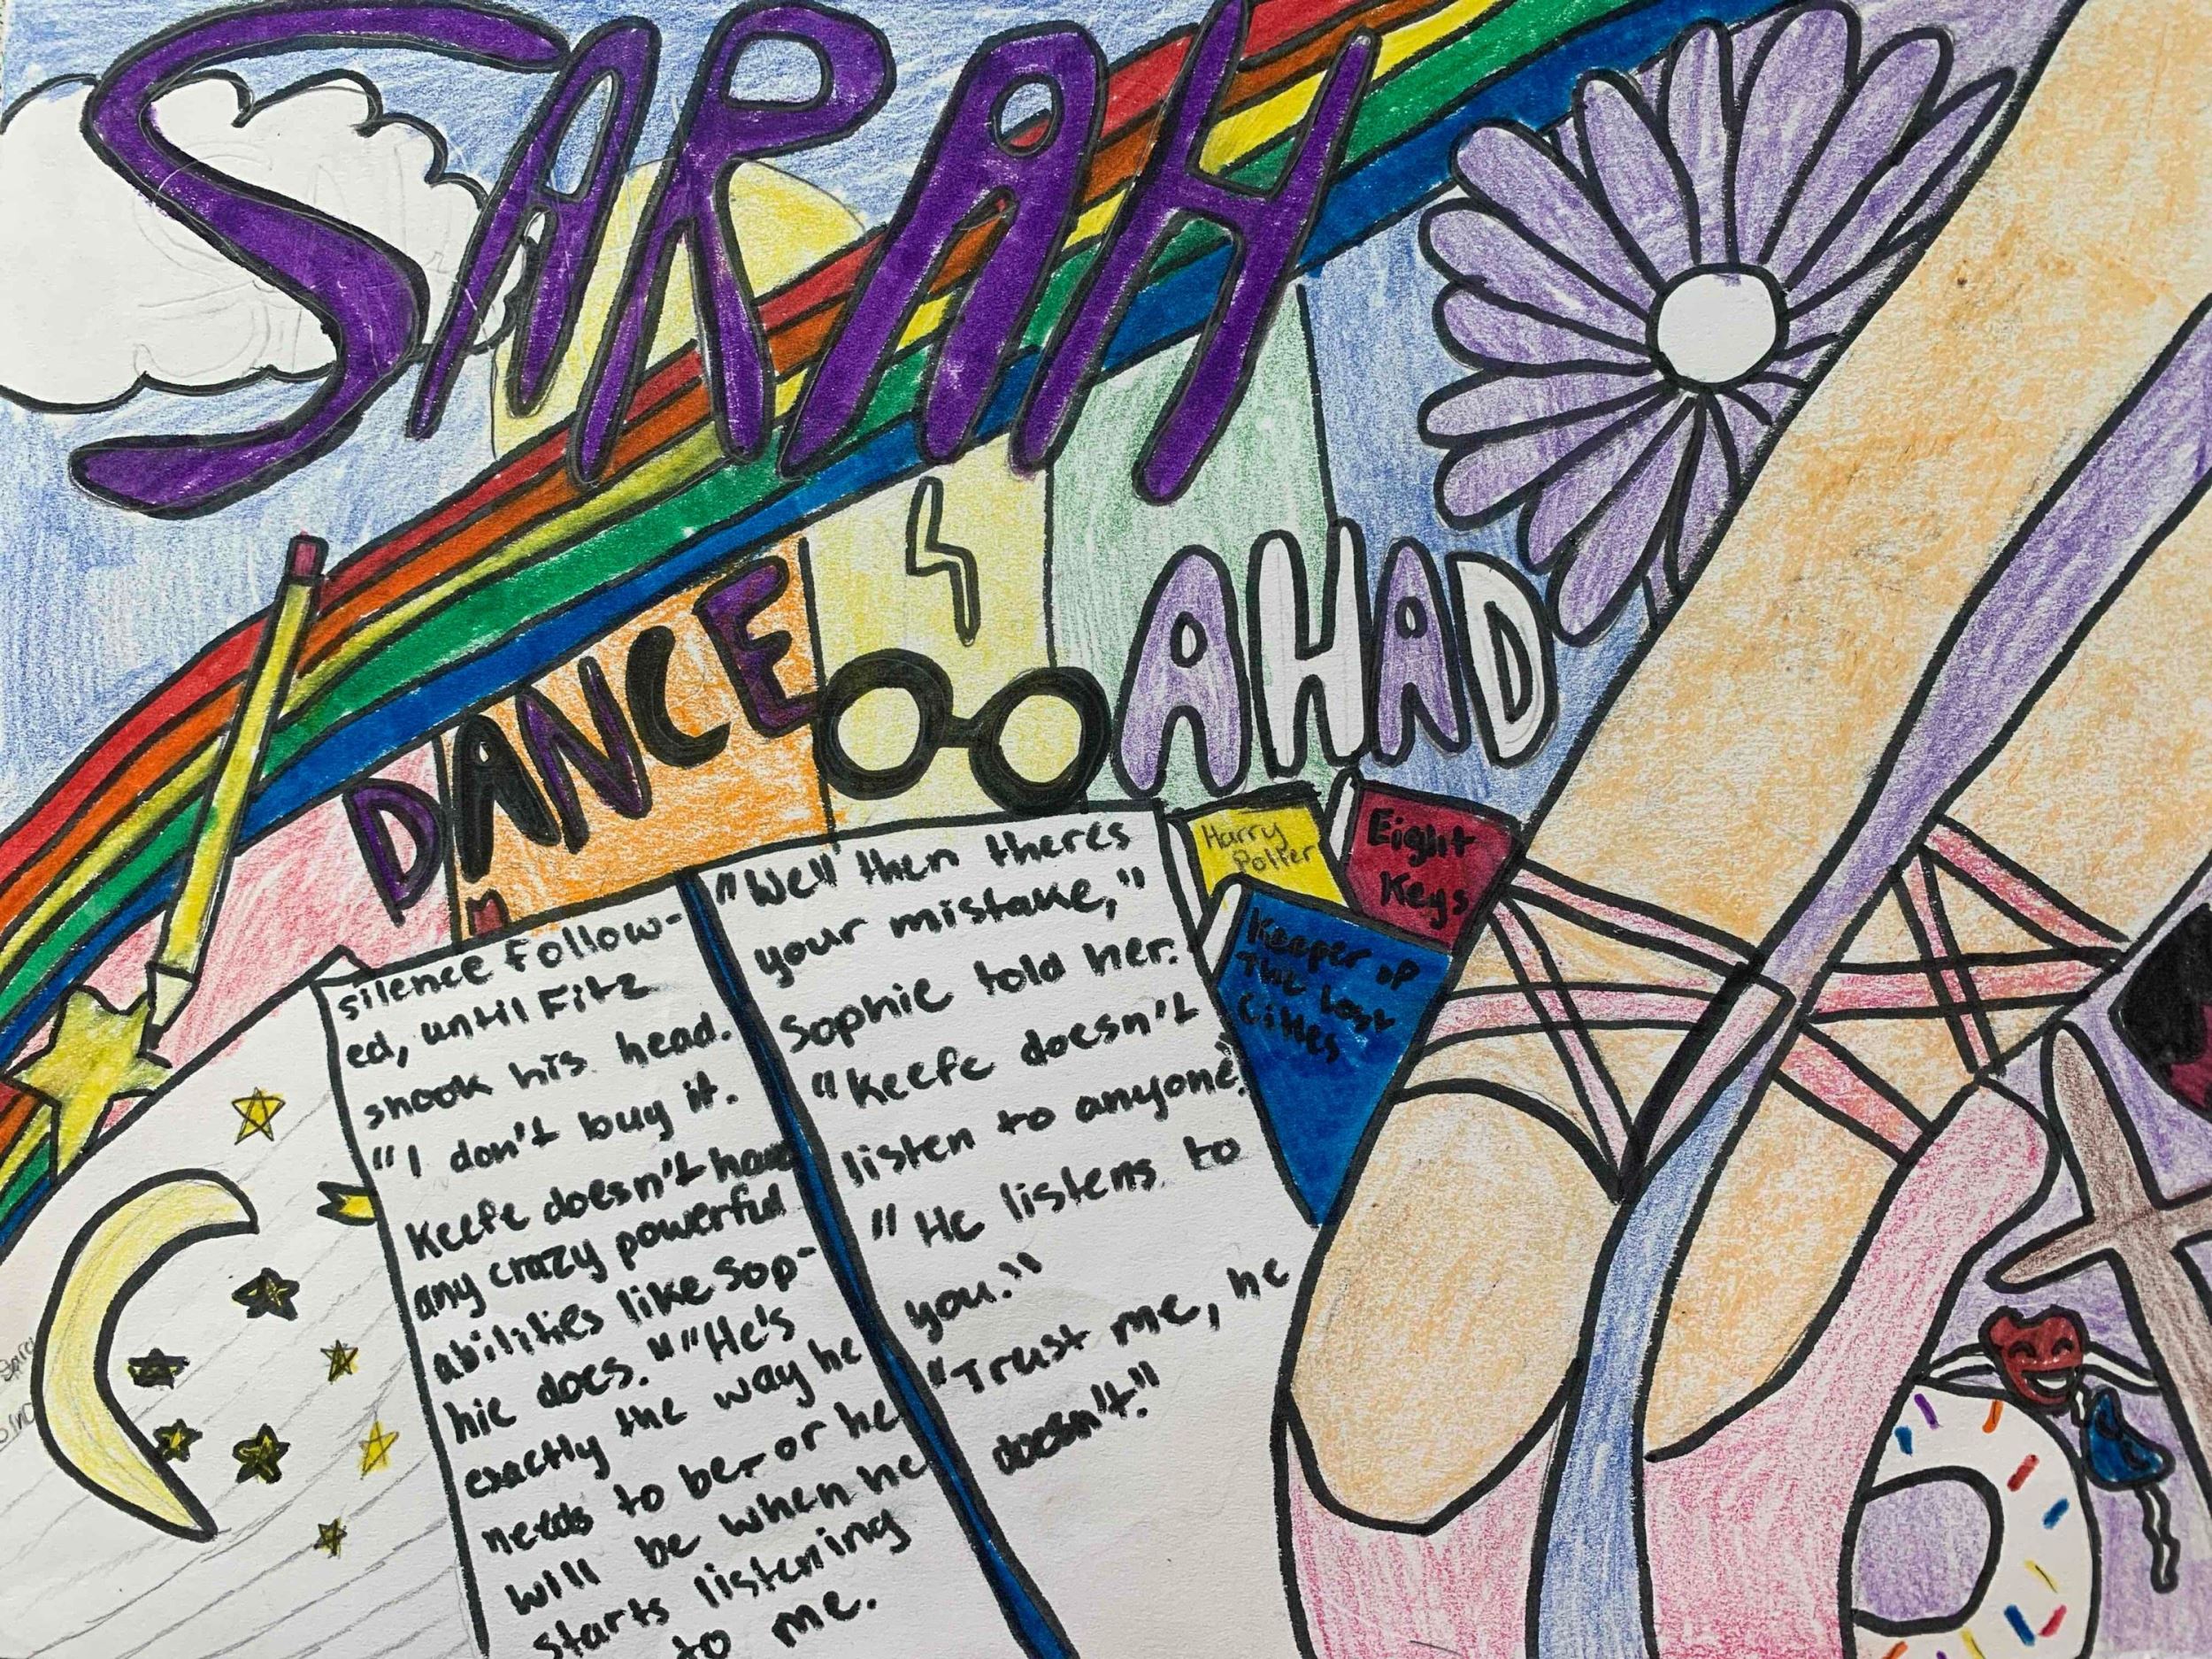 SARAH
DANCE
AHAD
Harry
Potter
Eight
Keys
Keeper of
The Lost
Cities
silence follow-
ed, until Fitz
shook his head.
"I don't buy it.
Keefe doesn't have
any crazy powerful
abilities like Sop-
hie does." "He's
exactly the way he
needs to be or he
will be when he
starts listening
to me.
"Well then theres
your mistake,"
Sophie told her.
"Keefe doesn't
listen to anyone."
"He listens to
you."
"Trust me, he
doesn't."